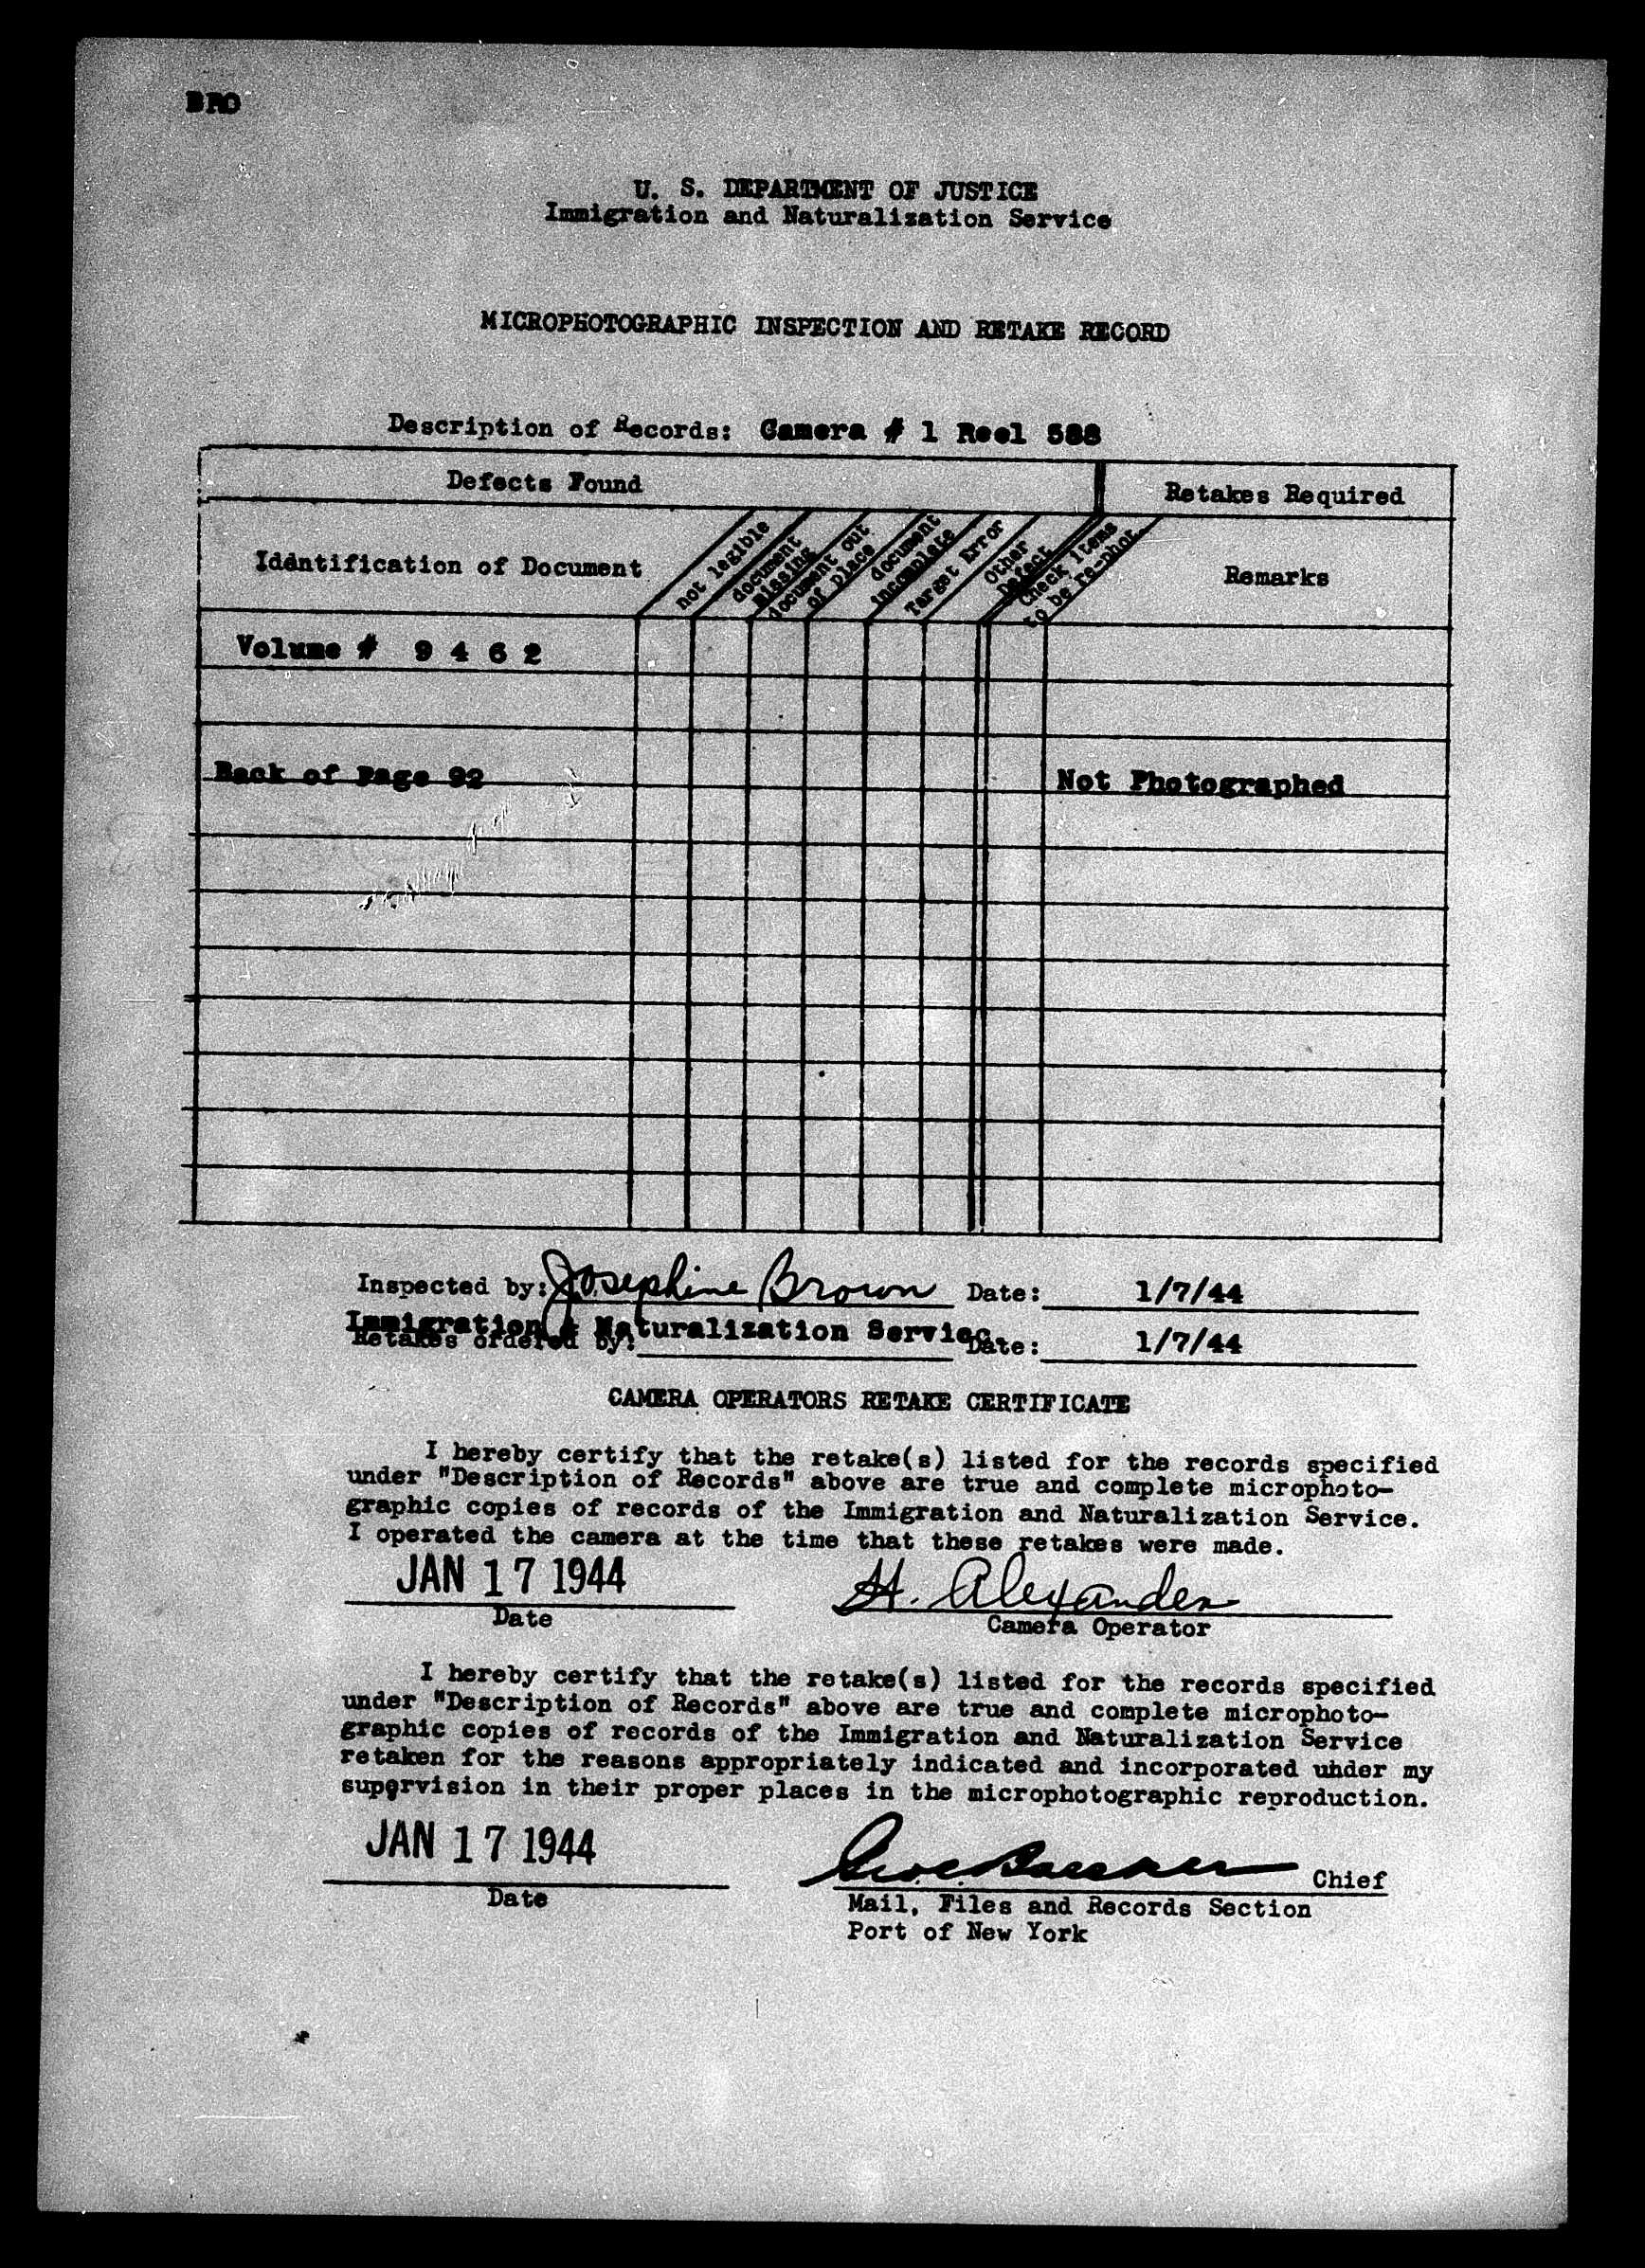 BRO
U. S. DEPARTMENT OF JUSTICE
Immigration and Naturalization Service
MICROPHOTOGRAPHIC INSPECTION AND RETAKE RECORD
Description of Records: Camera # 1 Reel 588
Defects Found
Retakes Required
Identification of Document
not legible
document missing
document out of place
document incomplete
Target Error
Other Defect
Check items to be re-phot.
Remarks
Volume # 9 4 6 2
Back of Page 92
Not Photographed
Inspected by: Josephine Brown Date: 1/7/44
Immigration & Naturalization Service
Retakes ordered by: Date: 1/7/44
CAMERA OPERATORS RETAKE CERTIFICATE
I hereby certify that the retake(s) listed for the records specified
under "Description of Records" above are true and complete microphoto-
graphic copies of records of the Immigration and Naturalization Service.
I operated the camera at the time that these retakes were made.
JAN 17 1944
H. Alexander
Date
Camera Operator
I hereby certify that the retake(s) listed for the records specified
under "Description of Records" above are true and complete microphoto-
graphic copies of records of the Immigration and Naturalization Service
retaken for the reasons appropriately indicated and incorporated under my
supervision in their proper places in the microphotographic reproduction.
JAN 17 1944
Chief
Date
Mail, Files and Records Section
Port of New York